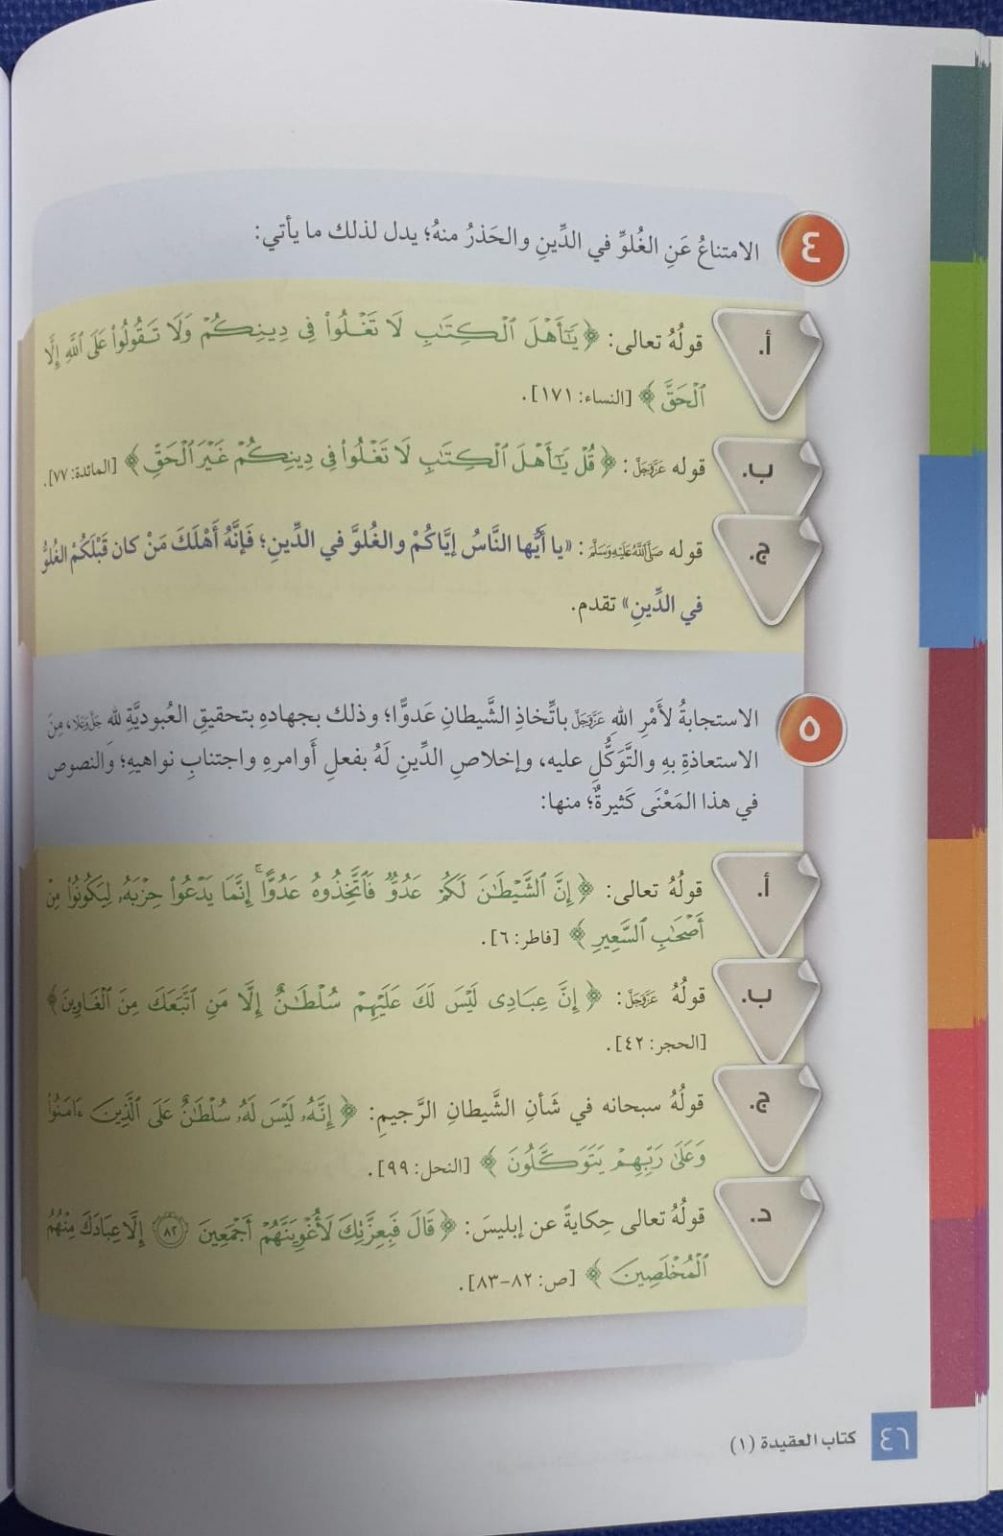 ٤
الامتناعُ عَنِ الغُلوِّ في الدِّينِ والحَذرُ منهُ؛ يدل لذلك ما يأتي:
أ.
قولُهُ تعالى: ﴿ يَٰٓأَهۡلَ ٱلۡكِتَٰبِ لَا تَغۡلُواْ فِي دِينِكُمۡ وَلَا تَقُولُواْ عَلَى ٱللَّهِ إِلَّا
ٱلۡحَقَّ ﴾ [النساء: ١٧١].
ب.
قوله عَزَّوَجَلَّ: ﴿ قُلۡ يَٰٓأَهۡلَ ٱلۡكِتَٰبِ لَا تَغۡلُواْ فِي دِينِكُمۡ غَيۡرَ ٱلۡحَقِّ ﴾ [المائدة: ٧٧].
ج.
قوله صَلَّى ٱللَّهُ عَلَيْهِ وَسَلَّمَ: «يا أَيُّها النَّاسُ إيَّاكُمْ والغُلوَّ في الدِّينِ؛ فَإِنَّهُ أَهْلَكَ مَنْ كان قَبْلَكُمْ الغُلوُّ
في الدِّينِ» تقدم.
٥
الاستجابةُ لأَمْرِ اللهِ عَزَّوَجَلَّ باتِّخاذِ الشَّيطانِ عَدوًّا؛ وذلك بجهادهِ بتحقيقِ العُبوديَّةِ لله جَلَّ وَعَلَا، مِنَ
الاستعاذةِ بهِ والتَّوَكُّلِ عليه، وإخلاصِ الدِّينِ لَهُ بفعلِ أوامرهِ واجتنابِ نواهيهِ؛ والنصوص
في هذا المَعْنَى كَثيرةٌ؛ منها:
أ.
قولُهُ تعالى: ﴿ إِنَّ ٱلشَّيۡطَٰنَ لَكُمۡ عَدُوّٞ فَٱتَّخِذُوهُ عَدُوًّاۚ إِنَّمَا يَدۡعُواْ حِزۡبَهُۥ لِيَكُونُواْ مِنۡ
أَصۡحَٰبِ ٱلسَّعِيرِ ﴾ [فاطر: ٦].
ب.
قولُهُ عَزَّوَجَلَّ: ﴿ إِنَّ عِبَادِي لَيۡسَ لَكَ عَلَيۡهِمۡ سُلۡطَٰنٌ إِلَّا مَنِ ٱتَّبَعَكَ مِنَ ٱلۡغَاوِينَ ﴾
[الحجر: ٤٢].
ج.
قولُهُ سبحانه في شَأنِ الشَّيطانِ الرَّجيمِ: ﴿ إِنَّهُۥ لَيۡسَ لَهُۥ سُلۡطَٰنٌ عَلَى ٱلَّذِينَ ءَامَنُواْ
وَعَلَىٰ رَبِّهِمۡ يَتَوَكَّلُونَ ﴾ [النحل: ٩٩].
د.
قولُهُ تعالى حِكايةً عن إبليسَ: ﴿ قَالَ فَبِعِزَّتِكَ لَأُغۡوِيَنَّهُمۡ أَجۡمَعِينَ ٨٢ إِلَّا عِبَادَكَ مِنۡهُمُ
ٱلۡمُخۡلَصِينَ ﴾ [ص: ٨٢-٨٣].
٤٦
كتاب العقيدة (١)